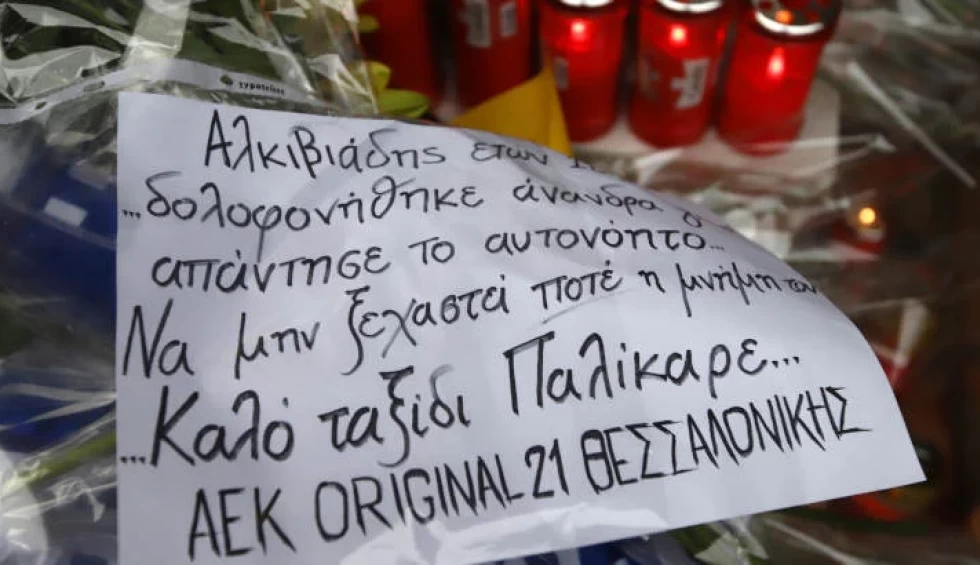 Αλκιβιάδης ετων
...δολοφονήθηκε άνανδρα
απάντησε το αυτονόητο...
Να μην ξεχαστεί ποτέ η μνήμη του
...Καλό ταξίδι Παλίκαρε...
ΑΕΚ ORIGINAL 21 ΘΕΣΣΑΛΟΝΙΚΗΣ